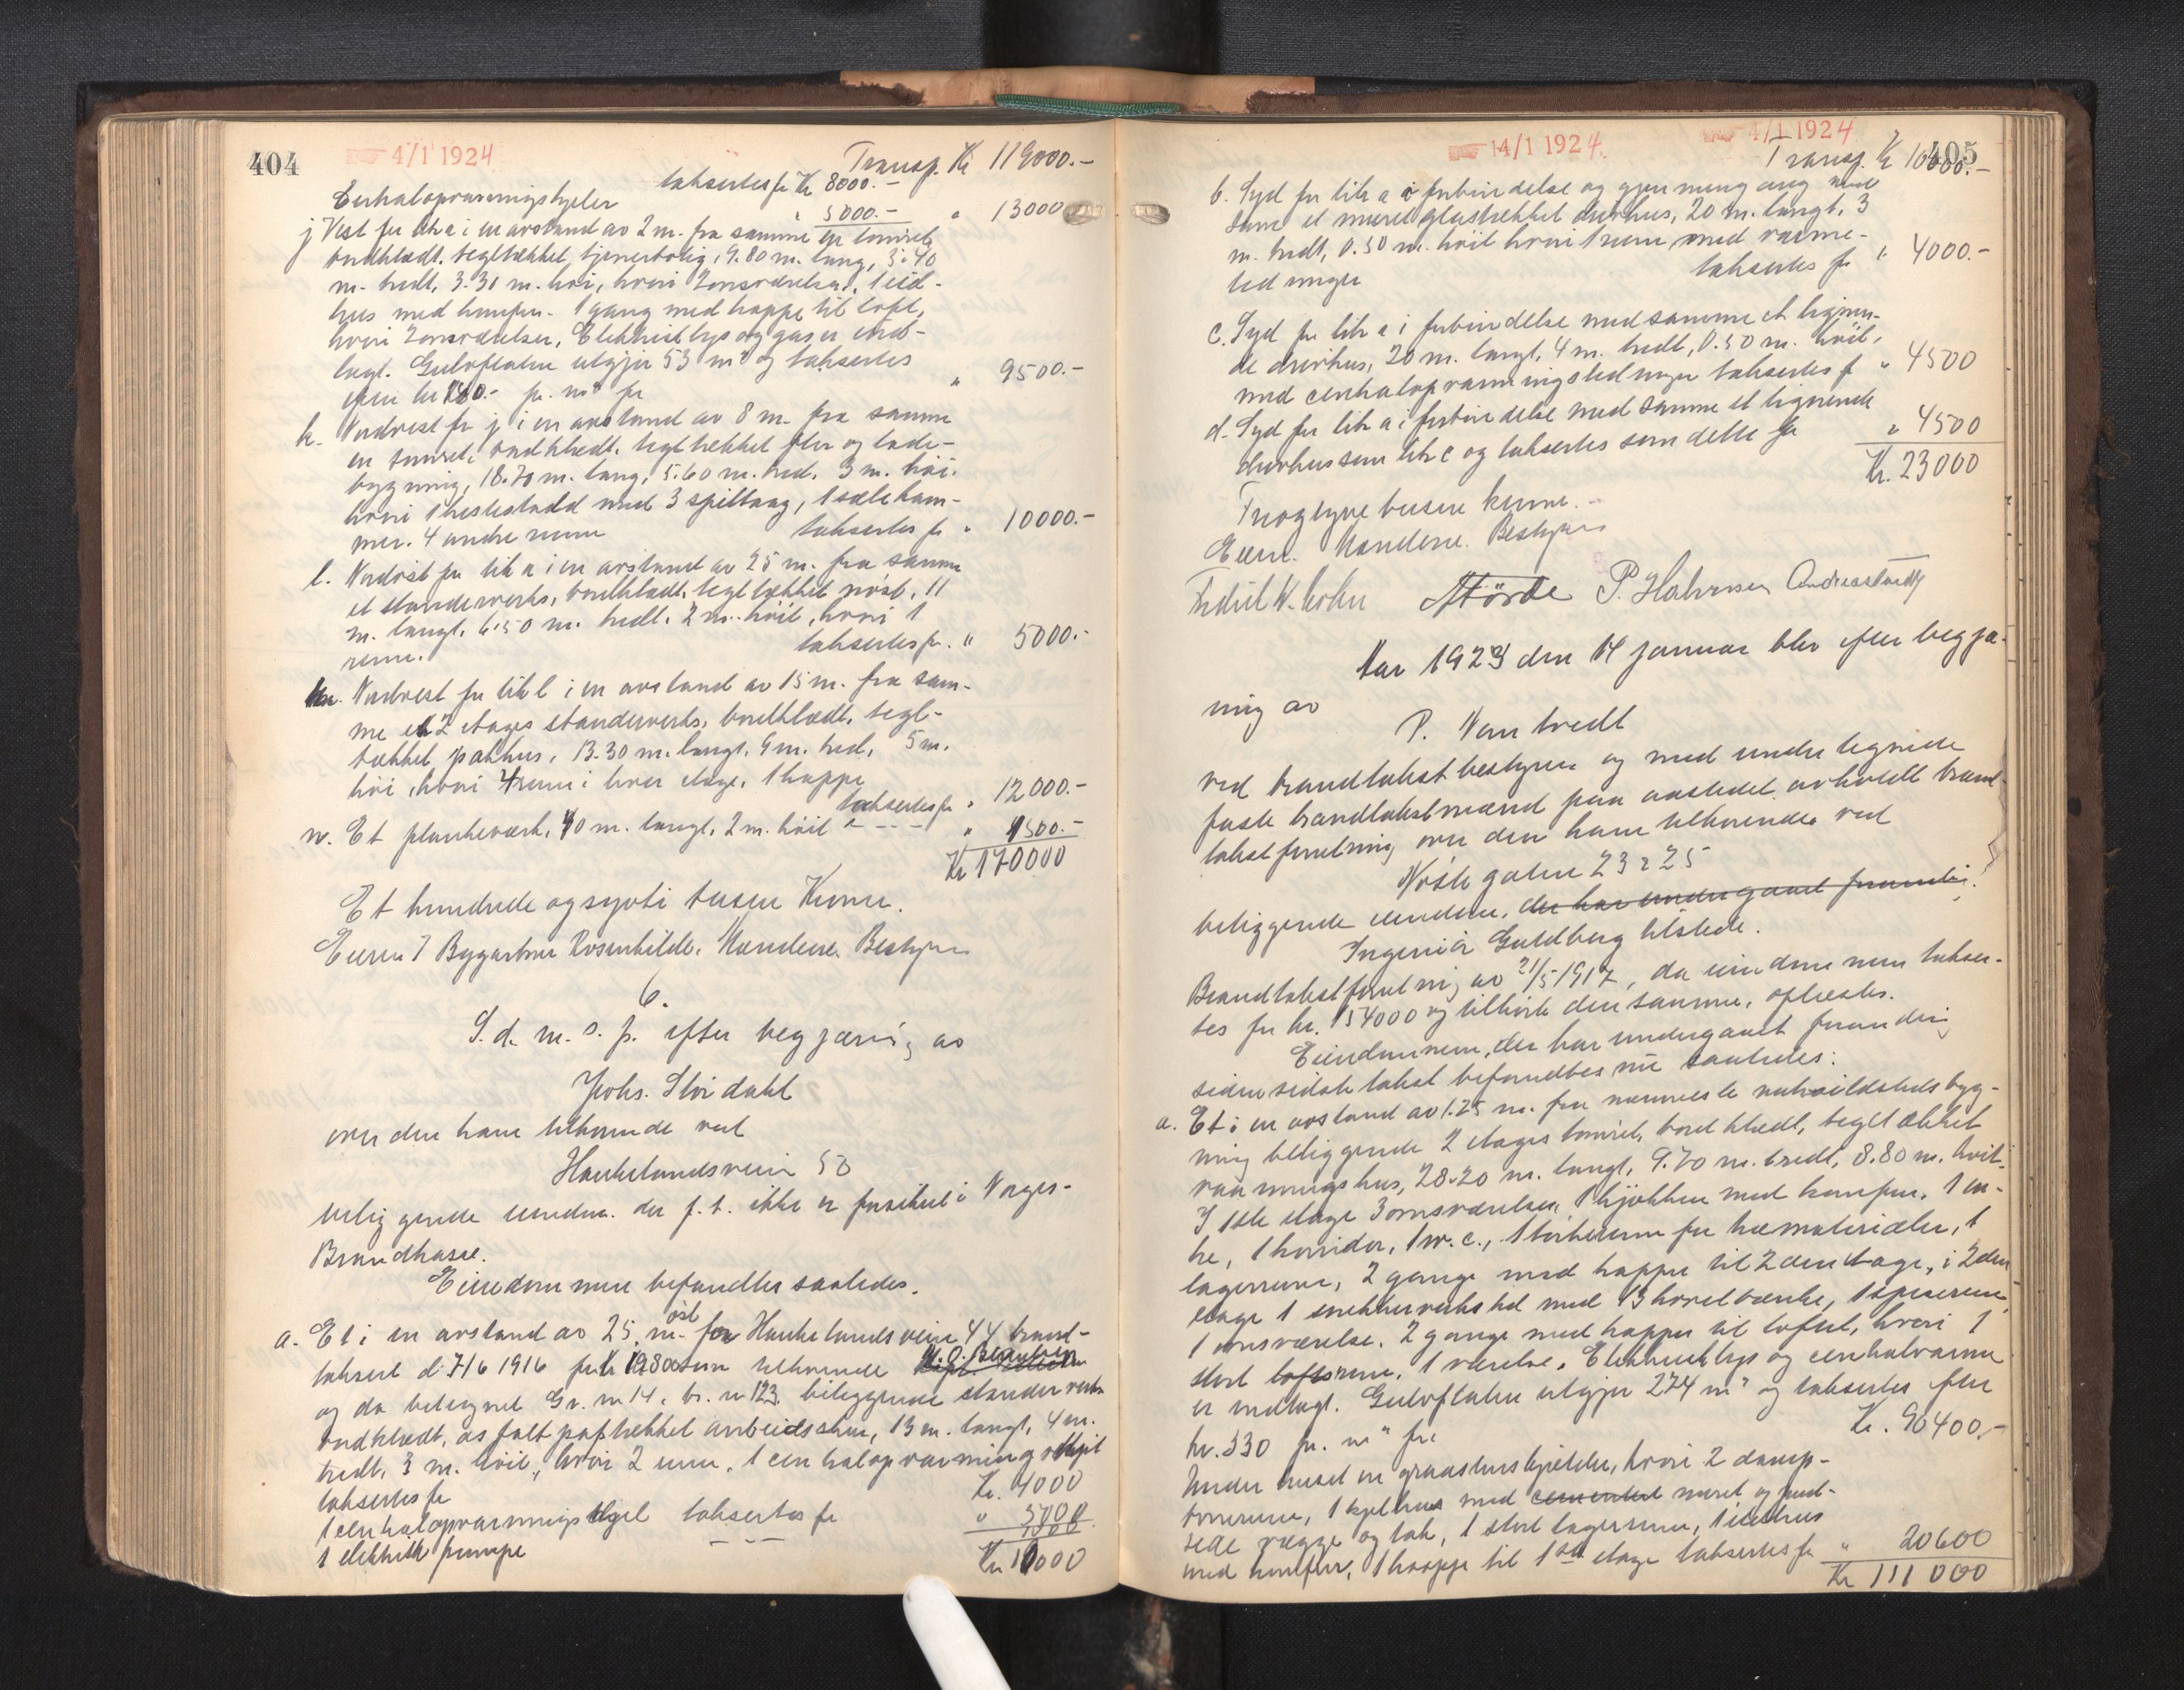 404
4/1 1924
Transp. Kr 119000.-
takseres for Kr 8000.-
Centralopvarmningskjeler " 5000.- " 13000
j Vest for litr a i en avstand av 2 m. fra samme en tømret,
bordklædt, tegltækket, tjenerbolig, 9.80 m. lang, 3.40
m. bredt, 3.30 m. høi, hvori 2 onsværelser, 1 ild-
hus med komfur. 1 gang med trappe til loft,
hvori 2 onsværelser, Elektrisk lys og gas er ind-
lagt. Gulvflaten utgjør 53 m² og takseres
efter kr 180.- pr. m² for " 9500.-
k. Nordvest for j i en avstand av 8 m. fra samme
en tømret, bordklædt, tegltækket stor og lade-
bygning, 18.70 m. lang, 5.60 m. bred, 3 m. høi.
hvori 1 hestestald med 3 spiltaug, 1 sælekam-
mer. 4 andre rum takseres for " 10000.-
l. Nordøst for litr a i en avstand av 25 m. fra samme
et standerverks, bordklædt, tegltækket nøst, 11
m. langt, 6.50 m. bredt, 2 m. høit, hvori 1
rum. takseres for. " 5000.-
m. Nordvest for litr l i en avstand av 15 m. fra sam-
me et 2 etages standerverks, bordklædt, tegl-
tækket pakhus, 13.30 m. langt, 9 m. bred, 5 m.
høi, hvori 4 rum i hver etage, 1 trappe
takseres for " 12000.-
n. Et plankeværk, 40 m. langt, 2 m. høit - - - " 1500.-
Kr 170000
Et hundrede og sytti tusen Kroner.
Eieren v/ Byggartner Rosenkilde. Mændene. Bestyrer
6.
S. d. m. s. p. efter begjæring av
Johs. Stordahl
over den ham tilhørende ved
Haukelandsveien 50
beliggende eiendom. der f. t. ikke er forsikret i Norges-
Brandkasse.
Eiendommen befandtes saaledes.
a. Et i en avstand av 25 m. øst for Haukelandsveien 44 brand-
taksert d. 7/6 1916 for kr 19800 som tilhørende
og da betegnet Gr. nr 14. br. nr 123 beliggende standerverks
bordklædt, asfalt paptækket arbeidshus, 13 m. langt, 4 m.
bredt, 3 m. høit, hvori 2 rum. 1 centralopvarmingskjel
takseres for Kr. 4000
1 centralopvarmnings kjel takseres for " 3000
1 elektrisk pumpe - - -
Kr 10000
4/1 1924
14/1 1924.
405
Transp. Kr 10000.-
b. Syd for litr a i forbindelse og gjennemgang med
same et muret glastækket drivhus, 20 m. langt, 3
m. bredt, 0.50 m. høit hvori 1 rum med varme-
ledninger takseres for " 4000.-
c. Syd for litr a i forbindelse med samme et lignen-
de drivhus, 20 m. langt, 4 m. bredt, 0.50 m. høit,
med centralopvarmningsledninger takseres f " 4500
d. Syd for litr a i forbindelse med samme et lignende
drivhus som litr c og takseres som dette for " 4500
Kr. 23000
Tre og tyve tusen kroner.-
Eieren. Mændene. Bestyrer
P. Halvorsen
Aar 1924 den 14 januar blev efter begjæ-
ring av
P. Van tvedt
ved brandtakstbestyrer og med undertegnede
faste brandtakstmænd paa aastedet avholdt brand-
takstforretning over den ham tilhørende ved
Nøste gaten 23 & 25
beliggende eiendom, der har undergaaet forandring.
Ingeniør Guldberg tilstede.
Brandtakstforretning av 21/5 1917, da eiendommen takser-
tes for kr. 154000 og tilhørte den samme, oplæstes.
Eiendommen, der har undergaaet forandring
siden sidste takst befandtes nu saaledes:
a. Et i en avstand av 1.25 m. fra nærmeste ildstedsbyg-
ning beliggende 2 etages tømret, bordklædt, tegltækket
vaaningshus, 28.20 m. langt, 9.70 m. bredt, 8.80 m. høit.
I 1ste etage 3 onsværelser, 1 kjøkken med komfur, 1 en-
tre, 1 korridor, 1 w. c., 1 tørkerum for træmaterialer, 1
lagerrum, 2 gange med trapper til 2den etage, i 2den
etage 1 snekkerverksted med 13 høvelbænke, 1 spiserum,
1 onsværelse. 2 gange med trapper til loftet, hvori 1
stort loftsrum, 1 værelse. Elektrisk lys og centralvarme
er indlagt. Gulvflaten utgjør 274 m² og takseres efter
kr. 330 pr. m² for Kr. 90400.-
Under huset en graastenskjelder, hvori 2 damp-
tørrerum, 1 kjelhus med cementert muret og pud-
sede vægge og tak, 1 stort lagerrum, 1 ildhus
med komfur, 1 trappe til 1ste etage takseres for " 20600
Kr 111000